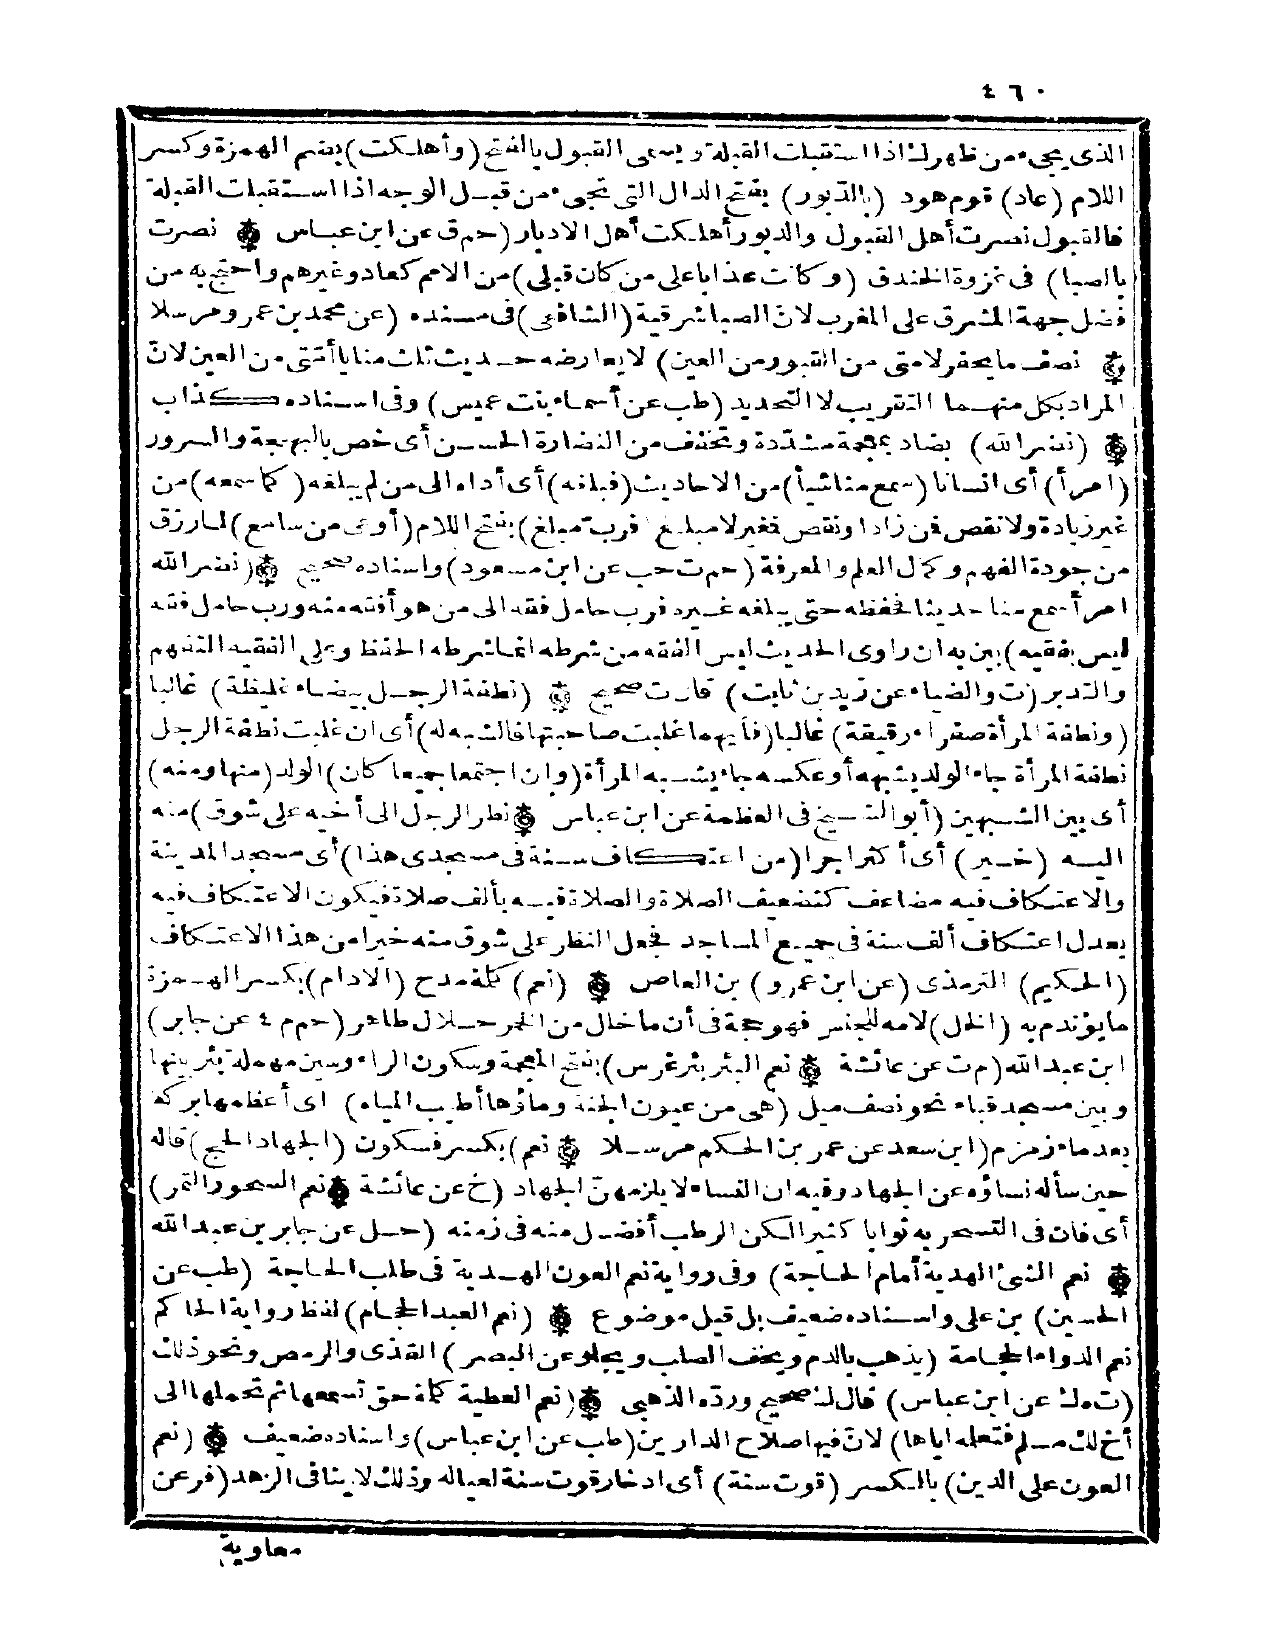 ٤٦٠
الذى يجىء من ظهرك اذا استقبلت القبلة ويسمى القبول بالفتح (وأهلكت) بضم الهمزة وكسر
اللام (عاد) قوم هود (بالدّبور) بفتح الدال التى تجىء من قبل الوجه اذا استقبلت القبلة
فالقبول نصرت أهل القبول والدبور أهلكت أهل الادبار (حم ق عن ابن عباس ۞ نصرت
بالصبا) فى غزوة الخندق (وكانت عذابا على من كان قبلى) من الامم كعاد وغيرهم واحتج به من
فضل جهة المشرق على المغرب لانّ الصبا شرقية (الشافعى) فى مسنده (عن محمد بن عمرو مرسلا
۞ نصف ما يحفر لامتى من القبور من العين) لا يعارضه حديث ثلث منايا أمتى من العين لانّ
المراد بكل منهما التقريب لا التحديد (طب عن أسماء بنت عميس) وفى اسناده كذاب
۞ (نضر الله) بضاد معجمة مشدّدة وتخفف من النضارة الحسن أى خص بالبهجة والسرور
(امرأ) أى انسانا (سمع منا شيأ) من الاحاديث (فبلغه) أى أداه الى من لم يبلغه (كما سمعه) من
غير زيادة ولا نقص فمن زاد او نقص فغير لا مبلغ (فربّ مبلغ) بفتح اللام (أوعى من سامع) لما رزق
من جودة الفهم وكمال العلم والمعرفة (حم ت حب عن ابن مسعود) واسناده صحيح ۞ (نضر الله
امرأ سمع منا حديثا فحفظه حتى يبلغه غيره فرب حامل فقه الى من هو أفقه منه ورب حامل فقه
ليس بفقيه) بين به ان راوى الحديث ليس الفقه من شرطه انما شرطه الحفظ وعلى الفقيه التفهم
والتدبر (ت والضياء عن زيد بن ثابت) قال ت صحيح ۞ (نطفة الرجل بيضاء غليظة) غالبا
(ونطفة المرأة صفراء رقيقة) غالبا (فأيهما غلبت صاحبتها فالشبه له) أى ان غلبت نطفة الرجل
نطفة المرأة جاء الولد يشبهه أو عكسه جاء يشبه المرأة (وان اجتمعا جميعا كان) الولد (منها ومنه)
أى بين الشبهين (أبو الشيخ فى العظمة عن ابن عباس ۞ نظر الرجل الى أخيه على شوق) منه
اليه (خير) أى أكثر اجرا (من اعتكاف سنة فى مسجدى هذا) أى مسجد المدينة
والاعتكاف فيه مضاعف كتضعيف الصلاة والصلاة فيه بألف صلاة فيكون الاعتكاف فيه
يعدل اعتكاف ألف سنة فى جميع المساجد فجعل النظر على شوق منه خيرا من هذا الاعتكاف
(الحكيم) الترمذى (عن ابن عمرو) بن العاص ۞ (نعم) كلمة مدح (الادام) بكسر الهمزة
ما يؤتدم به (الخل) لامه للجنس فهو حجة فى أن ما خلل من الخمر حلال طاهر (حم م ٤ عن جابر)
ابن عبد الله (م ت عن عائشة ۞ نعم البئر بئر غرس) بفتح المعجمة وسكون الراء وسين مهملة بئر بينها
وبين مسجد قباء نحو نصف ميل (هى من عيون الجنة وماؤها أطيب المياه) اى أعظمها بركة
بعد ماء زمزم (ابن سعد عن عمر بن الحكم مرسلا ۞ نعم) بكسر فسكون (الجهاد الحج) قاله
حين سأله نساؤه عن الجهاد وفيه ان النساء لا يلزمهنّ الجهاد (خ عن عائشة ۞ نعم السحور التمر)
أى فان فى التسحر به ثوابا كثيرا لكن الرطب أفضل منه فى زمنه (حل عن جابر بن عبد الله
۞ نعم الشئ الهدية أمام الحاجة) وفى رواية نعم العون الهدية فى طلب الحاجة (طب عن
الحسين) بن على واسناده ضعيف بل قيل موضوع ۞ (نعم العبد الحجام) لفظ رواية الحاكم
نعم الدواء الحجامة (يذهب بالدم ويخف الصلب ويجلو عن البصر) القذى والرمص ونحو ذلك
(ت ه ك عن ابن عباس) قال ك صحيح وردّه الذهبى ۞ (نعم العطية كلمة حق تسمعها ثم تحملها الى
أخ لك مسلم فتعلمه اياها) لانّ فيها صلاح الدارين (طب عن ابن عباس) واسناده ضعيف ۞ (نعم
العون على الدين) بالكسر (قوت سنة) أى ادخار قوت سنة لعياله وذلك لا ينافى الزهد (فر عن
معاوية